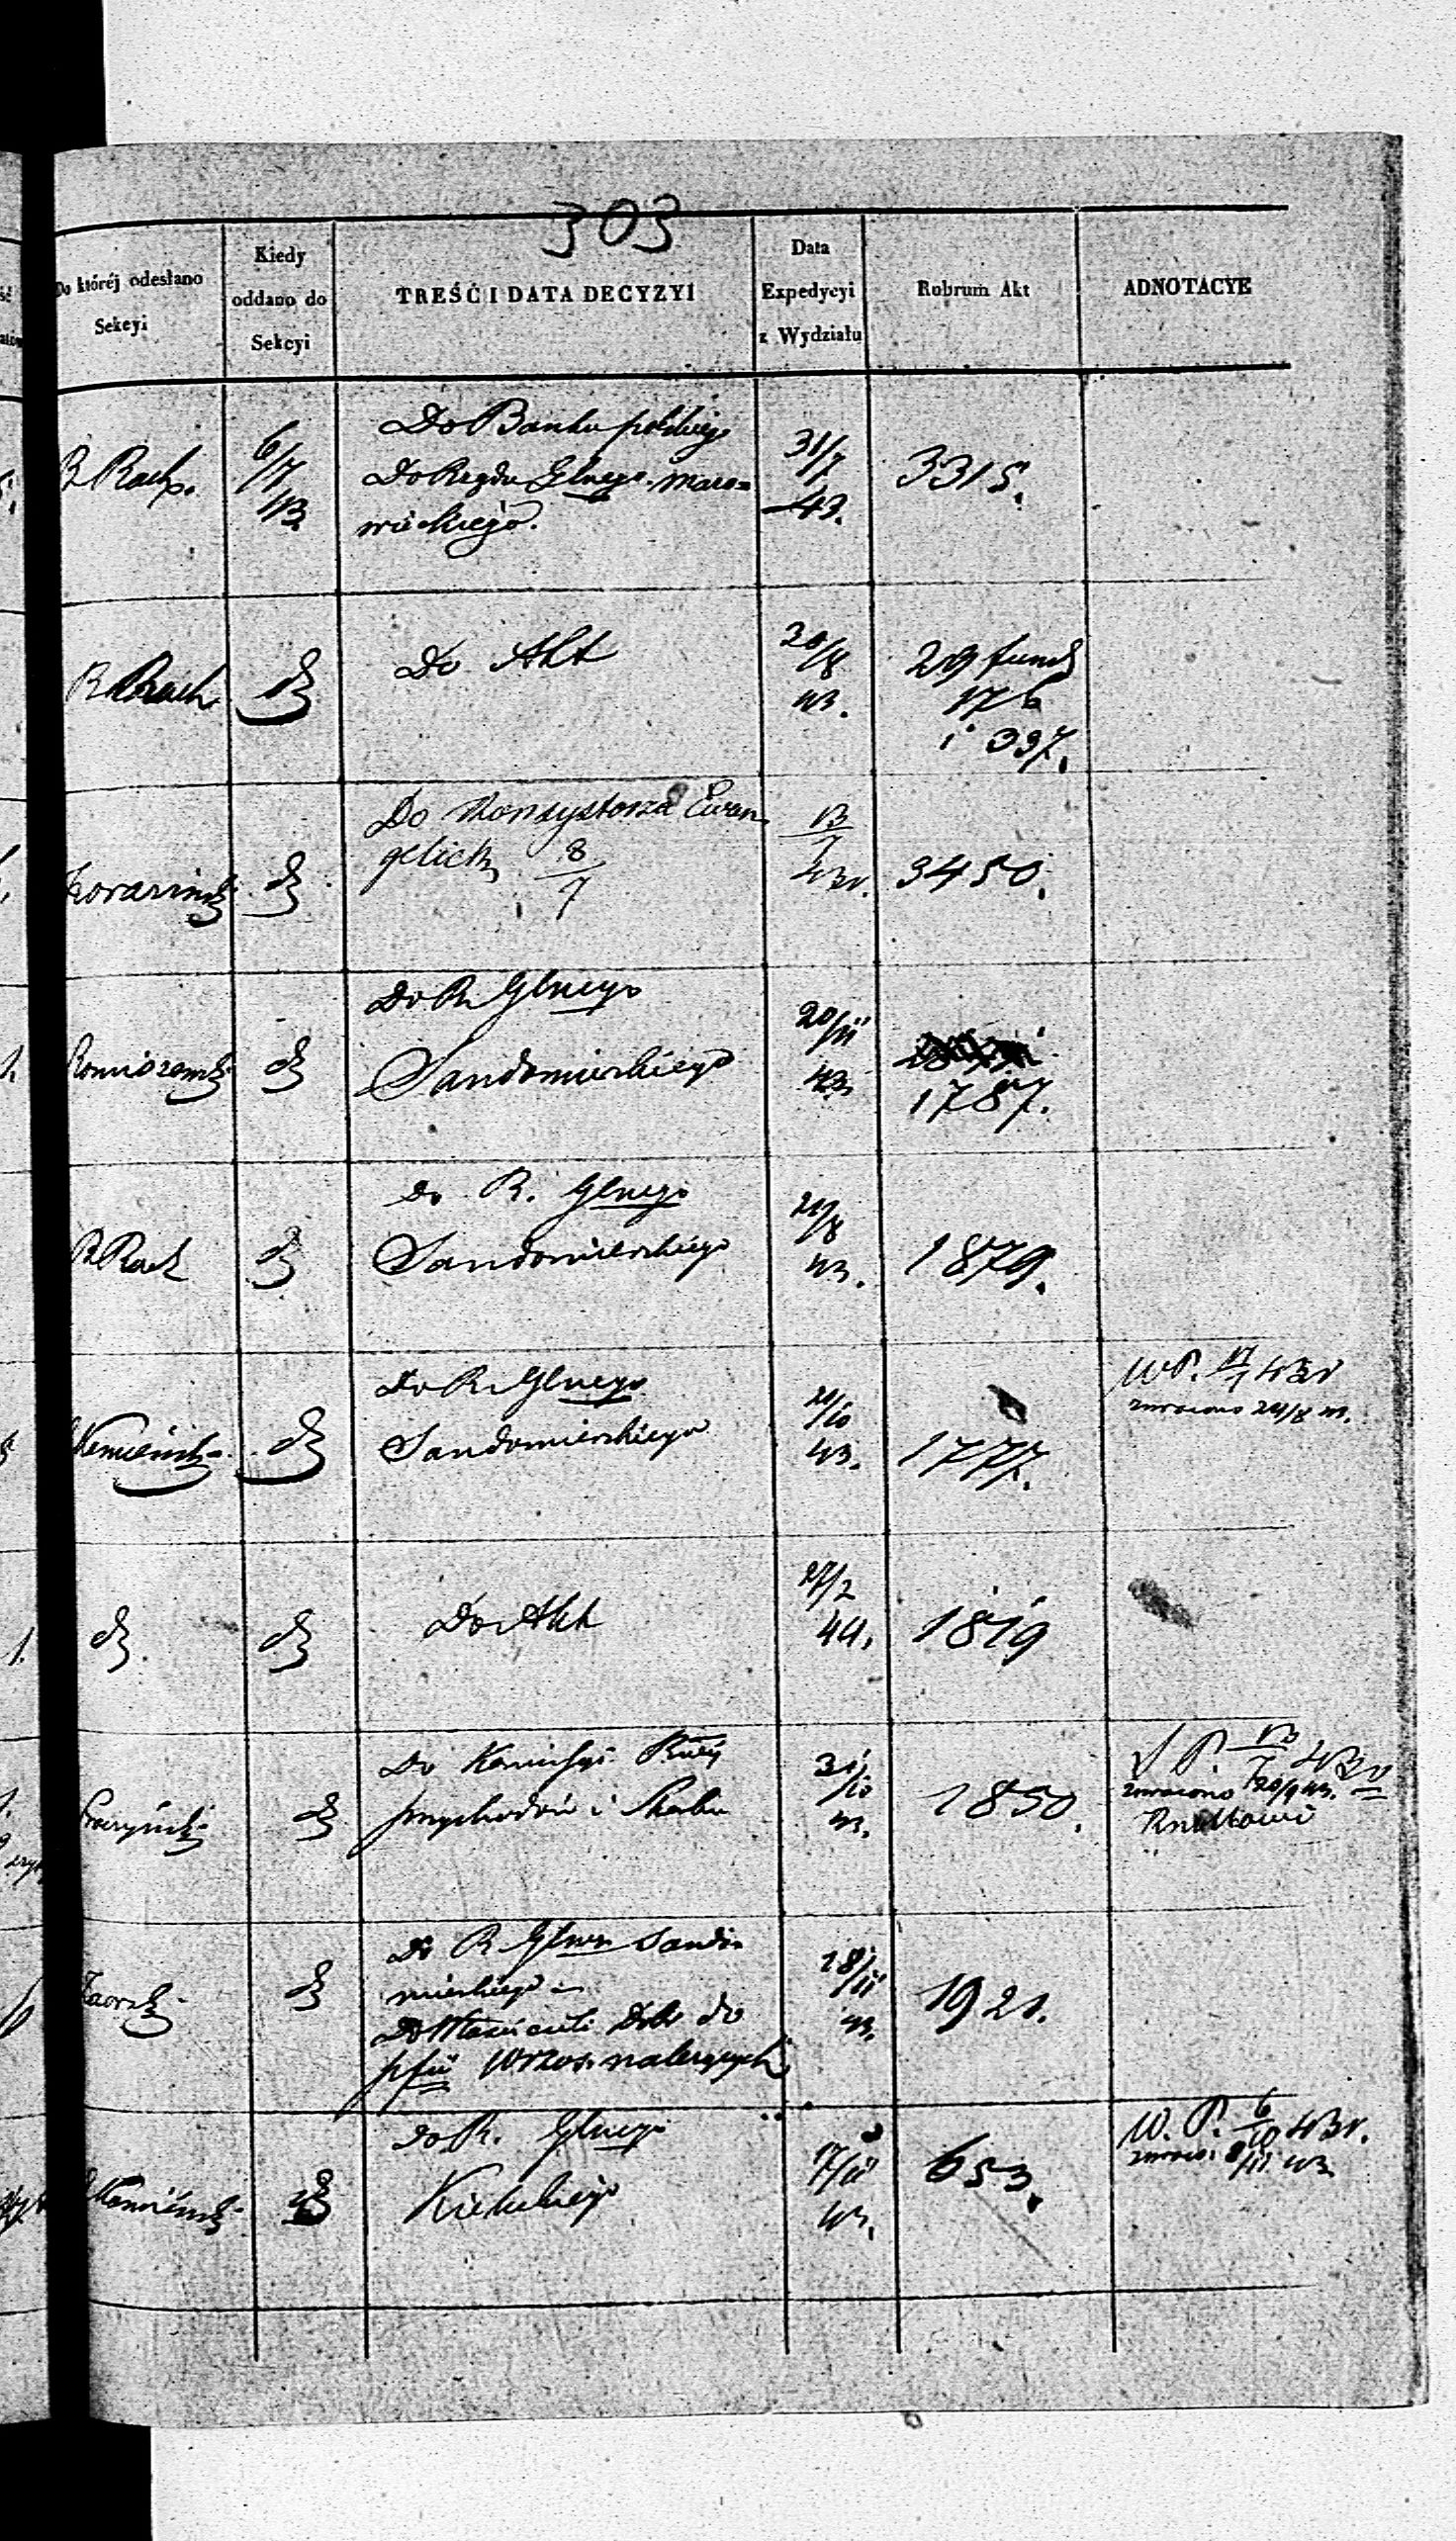 303
Do któréj odesłano
Sekcyi
Kiedy
oddano do
Sekcyi
TREŚĆ I DATA DECYZYI
Data
Expedycyi
z Wydziału
Rubrum Akt
ADNOTACYE
B Rach.
6/7
43.
Do Banku polskiego
Do Rządu Glnego Mazo=
wieckiego.
31/7
43.
3315.
B Rach
Do Akt
20/8
43.
209 fund
176
i 397.
Do Konsystorza Ewan
gelick 8/7
13/7
43 r.
3450.
Do R Glnego
Sandomierskiego
20/11
43
1787.
B Rach
Do R. Glnego
Sandomierskiego
43.
1879.
Do R Glnego
Sandomierskiego
20/10
43.
1777.
W P. 17/7 43 r
zwrócono 24/8 43.
Do Akt
27/2
44.
1819
Do Komissyi Rzwéj
przychodów i Skarbu
31/10
43.
1850.
13/7 43 r
zwrócono 20/9 43.
Do R Glnego Sando=
mierskiego =
Do Właścicieli Dóbr do
należących
18/11
43.
1921.
Do R. Glnego
Kieleckiego
17/11
43.
653.
W. P. 6/10 43 r.
8/11 43